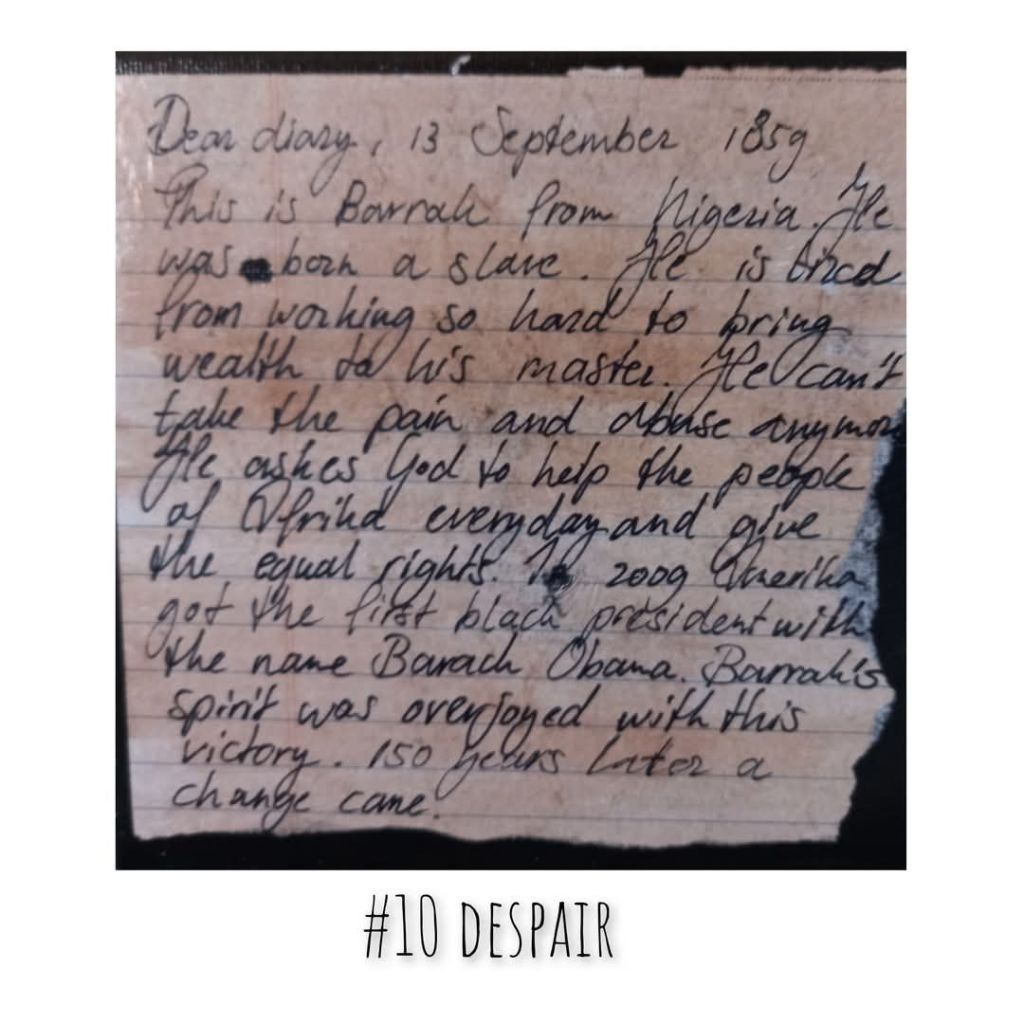 Dear diary, 13 September 1859
This is Barrak from Nigeria. He
was born a slave. He is tired
from working so hard to bring
wealth to his master. He can't
take the pain and abuse anymore
He askes God to help the people
of Afrika everyday and give
the equal rights. In 2009 Amerika
got the first black president with
the name Barack Obama. Barrak's
spirit was overjoyed with this
victory. 150 years later a
change came.
#10 DESPAIR